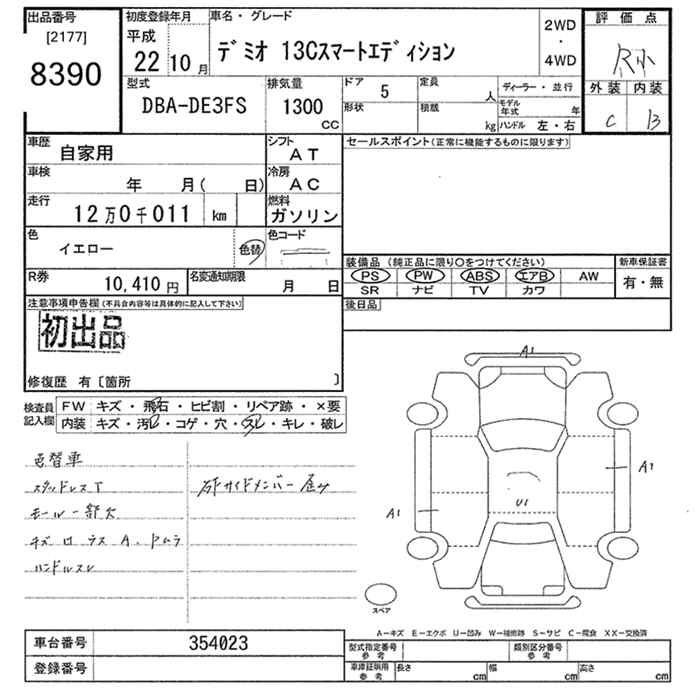 出品番号
[2177]
8390
初度登録年月
平成
22 10 月
車名・グレード
デミオ 13Cスマートエディション
2WD
・
4WD
評価点
R
外装 内装
C B
型式
DBA-DE3FS
排気量
1300
CC
ドア
5
定員
人
形状
積載
kg
ディーラー・並行
モデル年式
年
ハンドル 左・右
車歴
自家用
シフト
AT
車検
年 月( 日)
冷房
AC
走行
12万0千011 km
燃料
ガソリン
色
イエロー
色替
色コード
R券
10,410 円
名変通知期限
月 日
セールスポイント(正常に機能するものに限ります)
装備品(純正品に限り○をつけてください)
PS PW ABS エアB AW
SR ナビ TV カワ
新車保証書
有・無
後日品
注意事項申告欄(不具合内容等は具体的に記入して下さい)
初出品
修復歴 有〔箇所 〕
検査員記入欄
FW キズ・飛石・ヒビ割・リペア跡・×要
内装 キズ・汚レ・コゲ・穴・スレ・キレ・破レ
色替車
スタッドレスT
モール一部欠
キズ
A.
ハンドルスレ
サイドメンバー
A1
A1
U1
A1
スペア
A−キズ E−エクボ U−凹み W−補修跡 S−サビ C−腐食 XX−交換済
車台番号
354023
登録番号
型式指定番号
参考
類別区分番号
参考
車庫証明用
参考
長さ cm 幅 cm 高さ cm